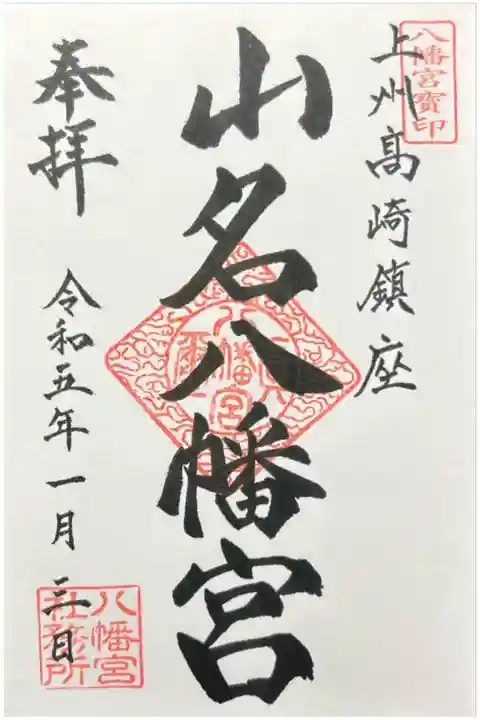 八幡宮寶印
上州高崎鎮座
山名八幡宮
奉拝
令和五年一月三日
八幡宮
社務所